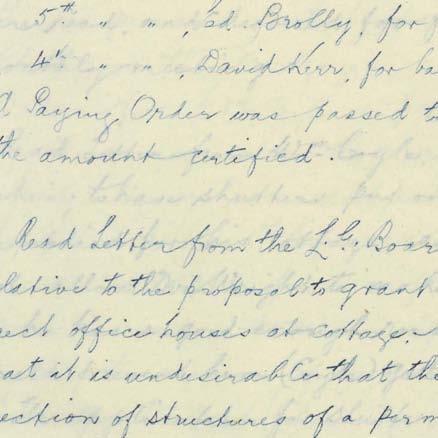 5th " " , Ed. Brolly, for
4th " " , David Kerr, for ba
Paying Order was passed to
the amount certified.
Read Letter from the L. G. Boar
lative to the proposal to grant
ect office houses at cottage.
at it is undesirable that the
ection of structures of a perm